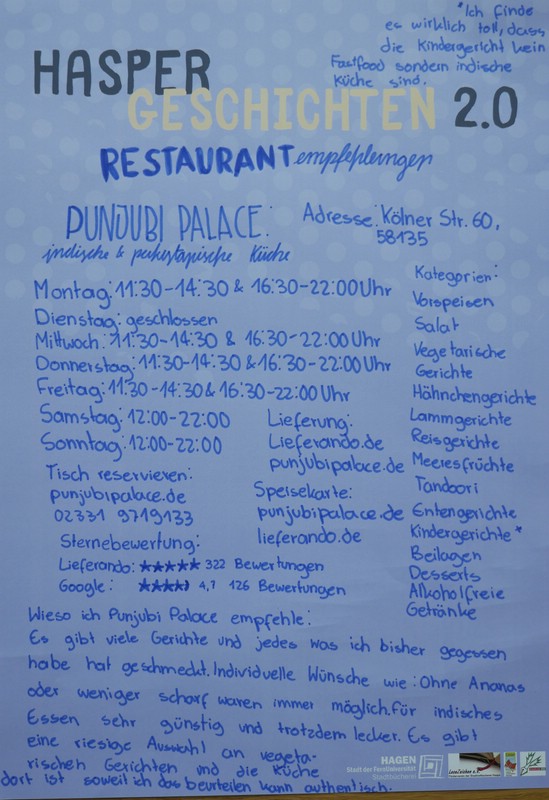 *Ich finde
es wirklich toll, dass
die Kindergericht kein
Fastfood sondern indische
Küche sind.
HASPER
GESCHICHTEN 2.0
RESTAURANTempfehlungen
PUNJUBI PALACE:
indische & pakistanische Küche
Adresse: Kölner Str. 60,
58135
Montag: 11:30-14:30 & 16:30-22:00 Uhr
Dienstag: geschlossen
Mittwoch: 11:30-14:30 & 16:30-22:00 Uhr
Donnerstag: 11:30-14:30 & 16:30-22:00 Uhr
Freitag: 11:30-14:30 & 16:30-22:00 Uhr
Samstag: 12:00-22:00
Sonntag: 12:00-22:00
Tisch reservieren:
punjubipalace.de
02331 9719133
Lieferung:
Lieferando.de
punjubipalace.de
Speisekarte:
punjubipalace.de
lieferando.de
Kategorien:
Vorspeisen
Salat
Vegetarische
Gerichte
Hähnchengerichte
Lammgerichte
Reisgerichte
Meeresfrüchte
Tandoori
Entengerichte
Kindergerichte*
Beilagen
Desserts
Alkoholfreie
Getränke
Sternebewertung:
Lieferando: ★★★★★ 322 Bewertungen
Google: ★★★★ 4,7 126 Bewertungen
Wieso ich Punjubi Palace empfehle:
Es gibt viele Gerichte und jedes was ich bisher gegessen
habe hat geschmeckt. Individuelle Wünsche wie: Ohne Ananas
oder weniger scharf waren immer möglich. Für indisches
Essen sehr günstig und trotzdem lecker. Es gibt
eine riesige Auswahl an vegeta-
rischen Gerichten und die Küche
dort ist soweit ich das beurteilen kann authentisch.
HAGEN
Stadt der FernUniversität
Stadtbücherei